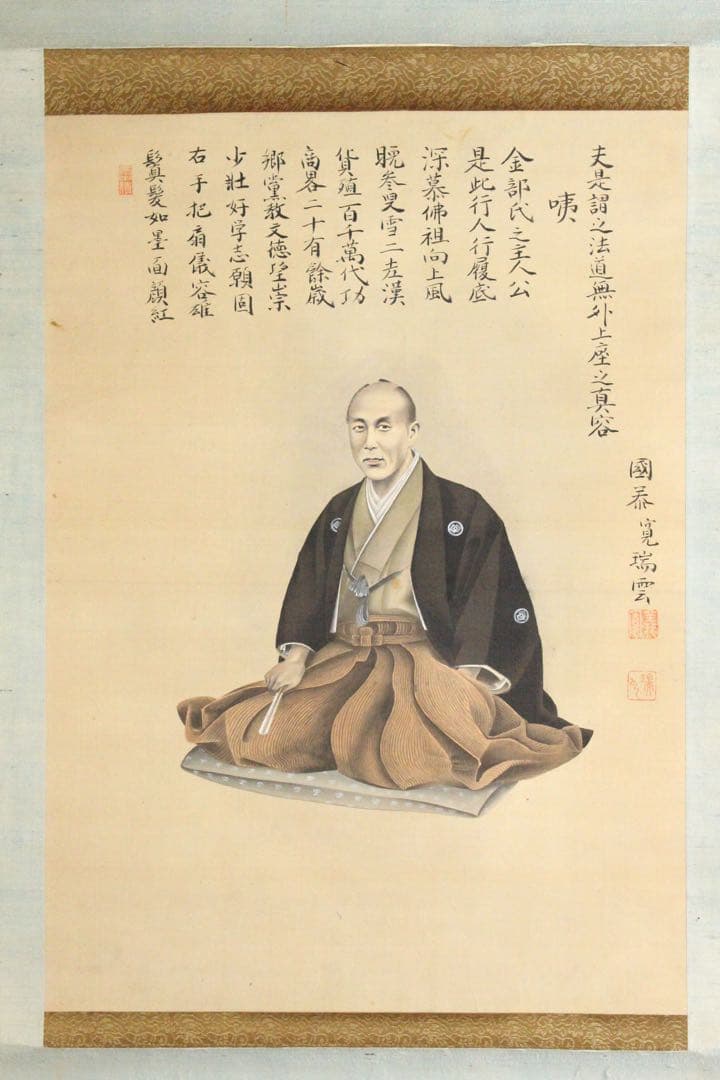 鬢髮如墨面顔紅
右手把扇儀容雄
少壮好学志願固
郷黨教文徳望崇
商畧二十有餘歳
貨殖百千萬代功
晩参叟雪二老漢
深慕佛祖向上風
是此行人行履底
金部氏之主人公
咦
夫是謂之法道無外上座之真容
國泰寛瑞雲